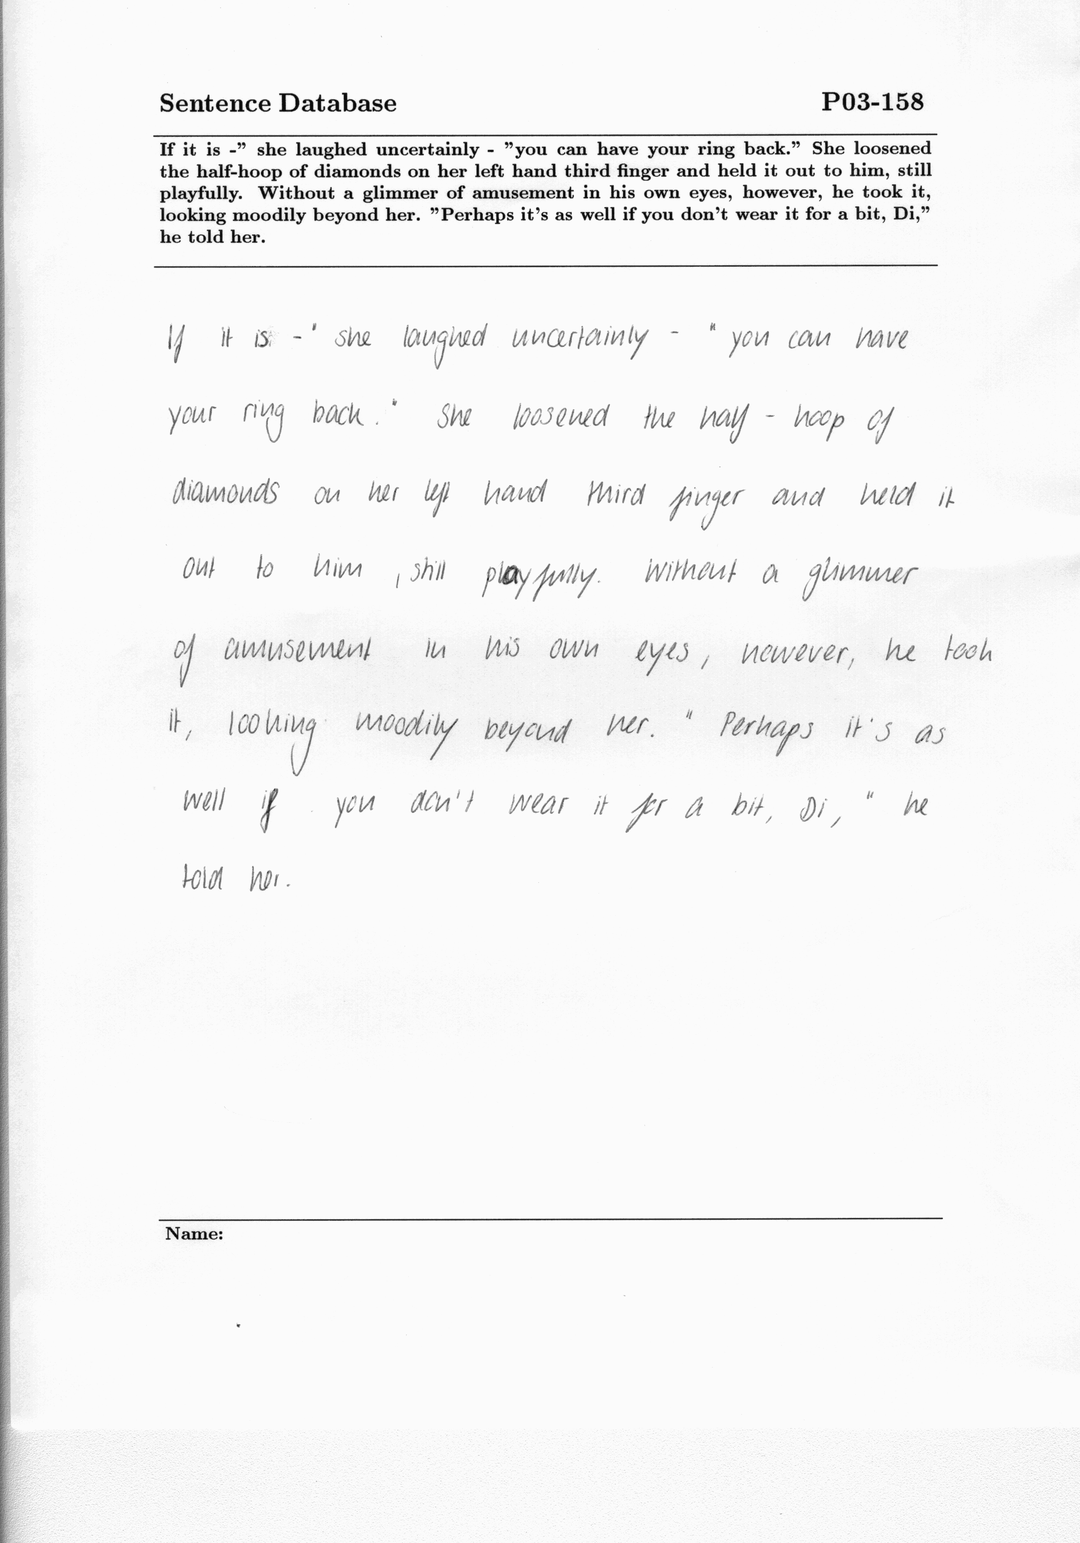 Sentence Database P03-158
If it is -” she laughed uncertainly - ”you can have your ring back.” She loosened
the half-hoop of diamonds on her left hand third finger and held it out to him, still
playfully. Without a glimmer of amusement in his own eyes, however, he took it,
looking moodily beyond her. ”Perhaps it’s as well if you don’t wear it for a bit, Di,”
he told her.
If it is -" she laughed uncertainly - "you can have
your ring back." She loosened the half-hoop of
diamonds on her left hand third finger and held it
out to him, still playfully. Without a glimmer
of amusement in his own eyes, however, he took
it, looking moodily beyond her. "Perhaps it's as
well if you don't wear it for a bit, Di," he
told her.
Name: